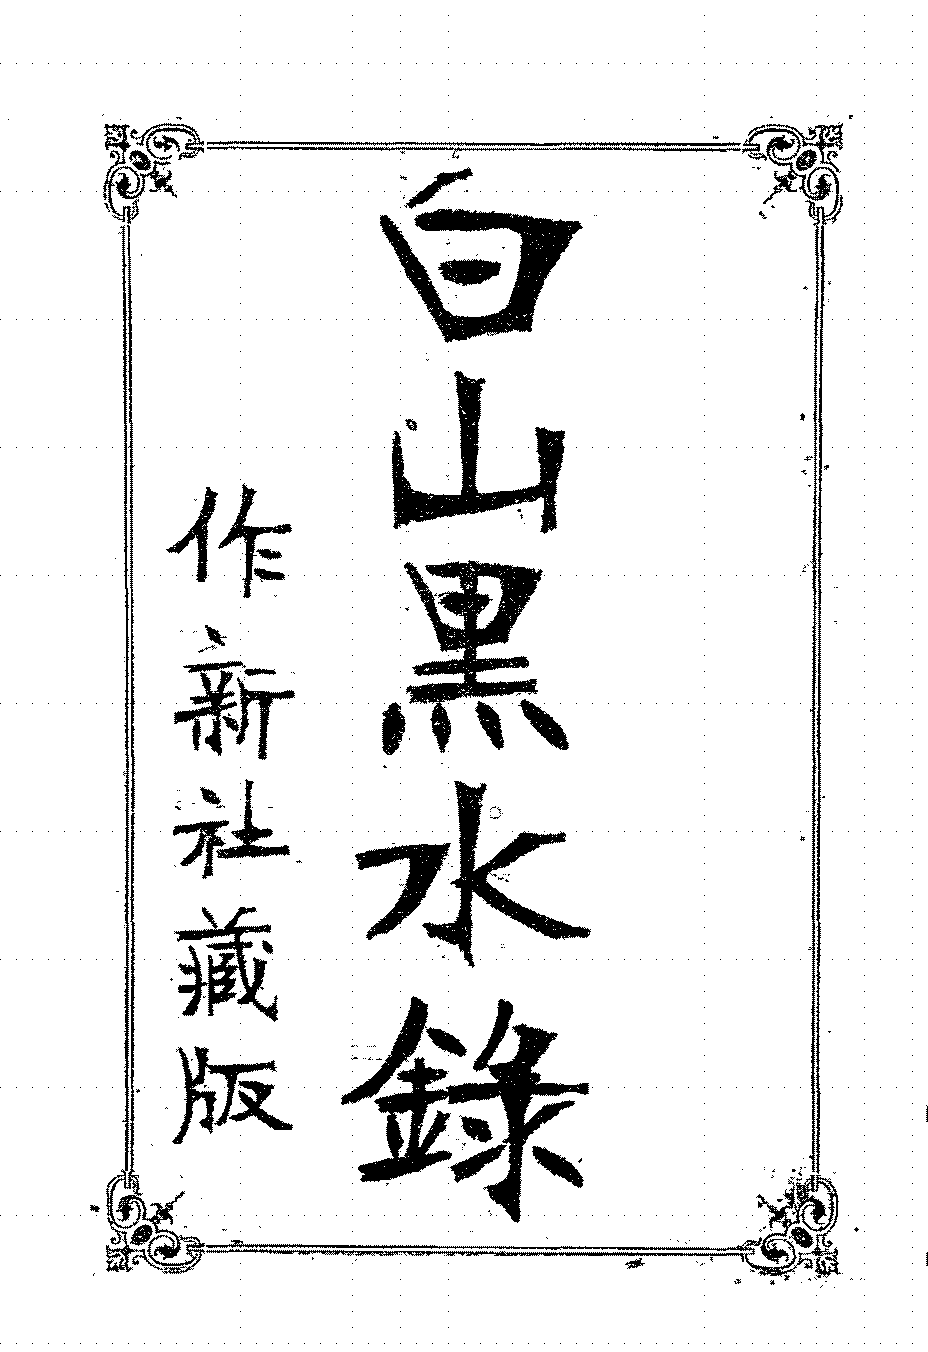 白山黑水錄
作新社藏版